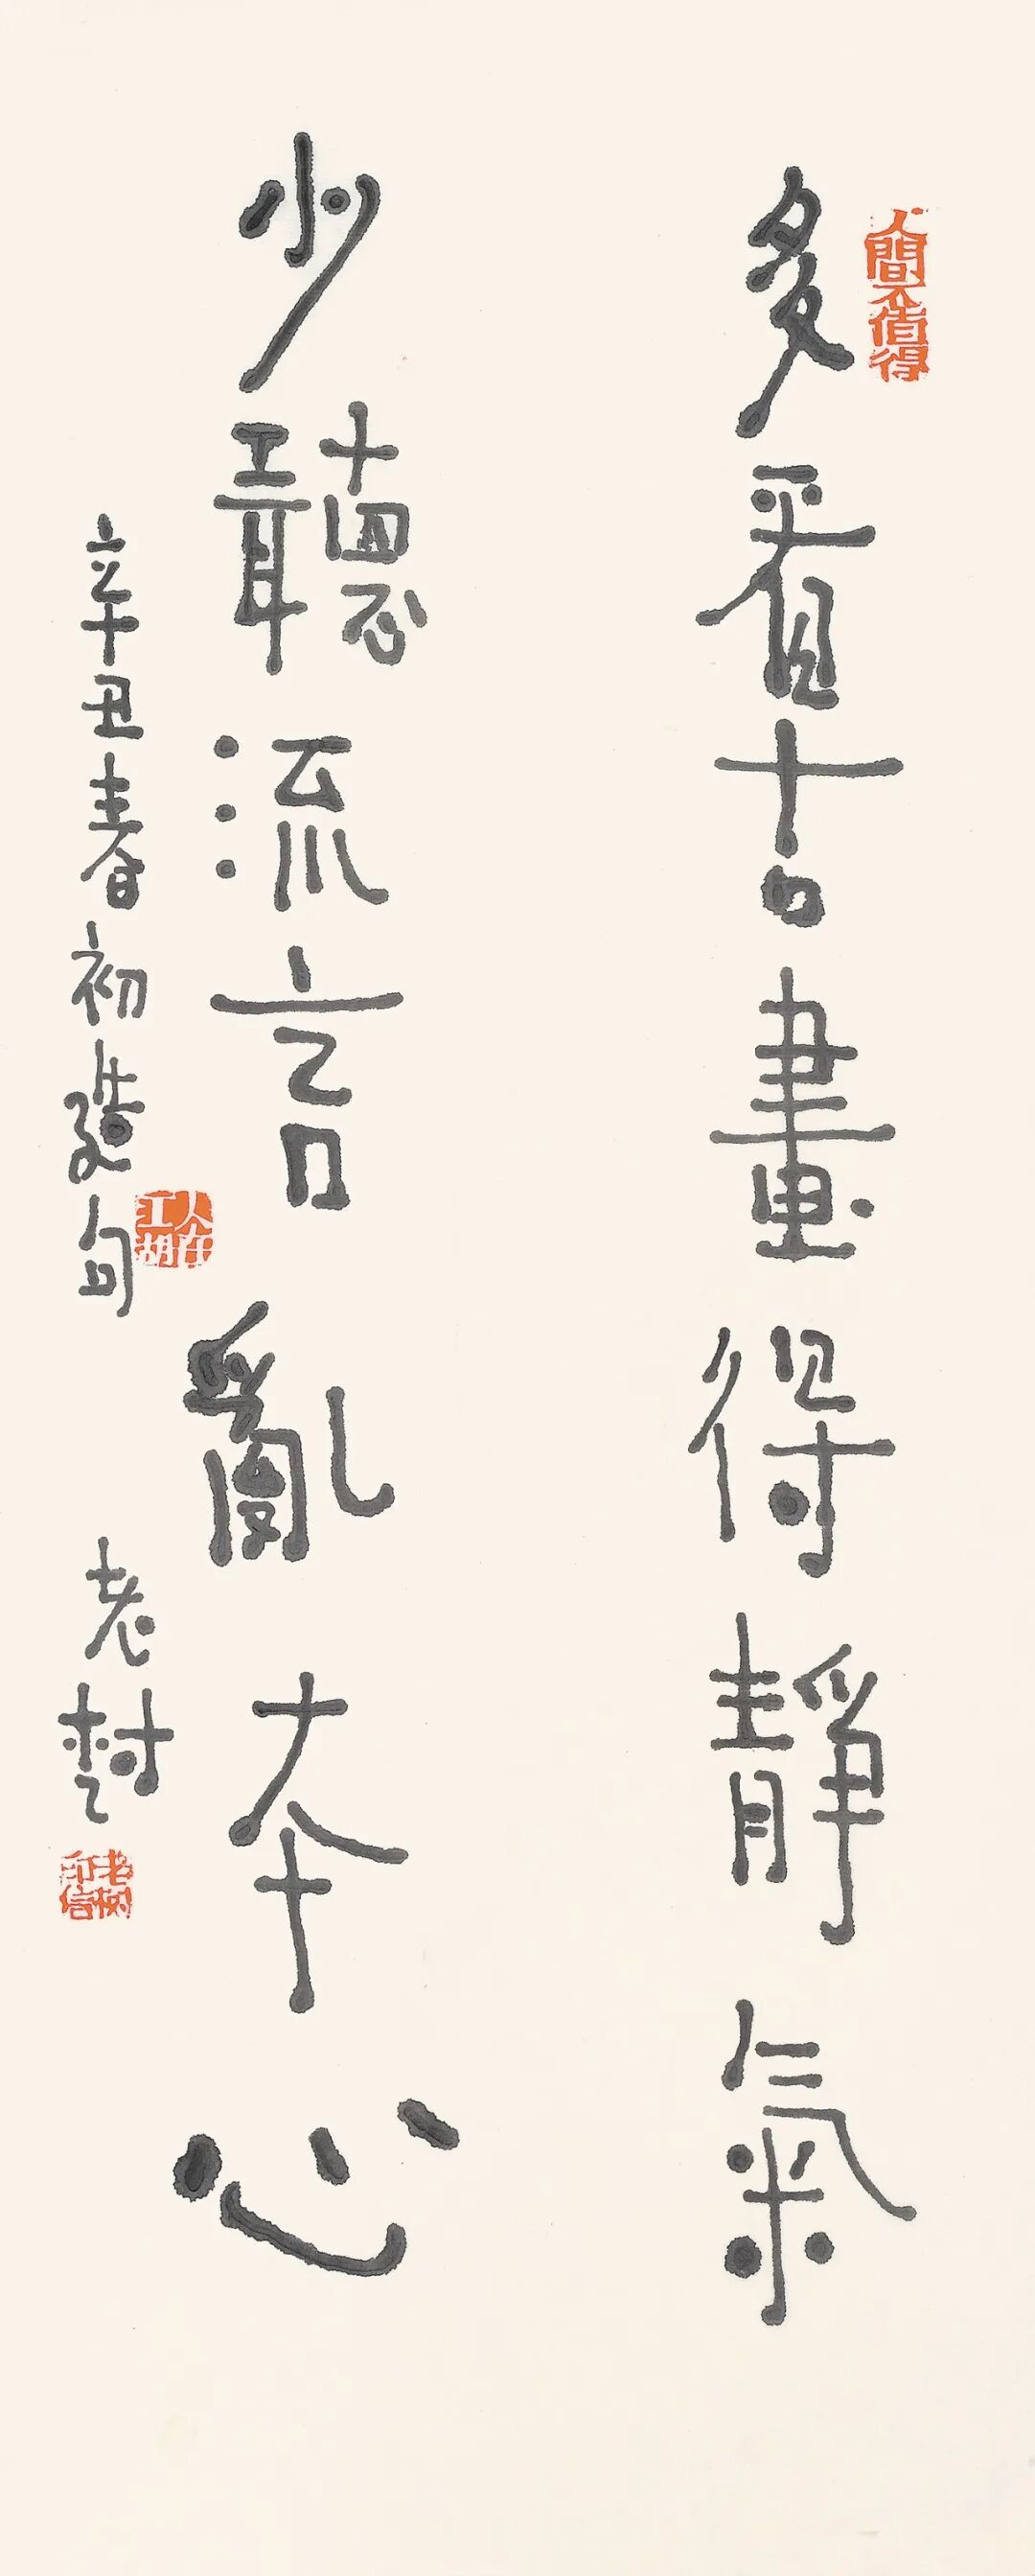 多看古畫得静氣
少聽流言亂本心
辛丑春初造句
老树
人間不值得
人在江湖
老树印信